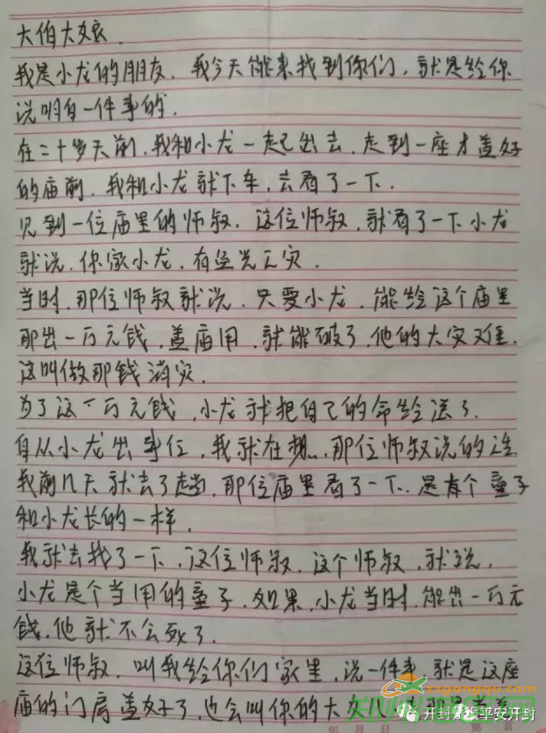 大伯大娘.
我是小龙的朋友. 我今天能来找到你们, 就是给你
说明白一件事的.
在二十多天前, 我和小龙一起出去, 走到一座才盖好
的庙前, 我和小龙就下车, 去看了一下.
见到一位庙里的师叔, 这位师叔, 就看了一下小龙
就说, 你家小龙, 有灾.
当时, 那位师叔就说, 只要小龙, 能给这个庙里
那出一万元钱, 盖庙用, 就能破了, 他的大灾难.
这叫做那钱消灾.
为了这一万元钱, 小龙就把自己的命给送了.
自从小龙出事, 我就在想... 那位师叔说的
我前几天就去了, 那位庙里看了一下.. 是有个童子
和小龙长的一样.
我就去找了一下, 这位师叔, 这个师叔, 就说,
小龙是个当用的童子, 如果, 小龙当时, 能出一万元
钱, 他就不会死了.
这位师叔, 叫我给你们家里, 说一件事, 就是这座
庙的门房盖好了, 也会叫你的大女儿
开封 平安开封